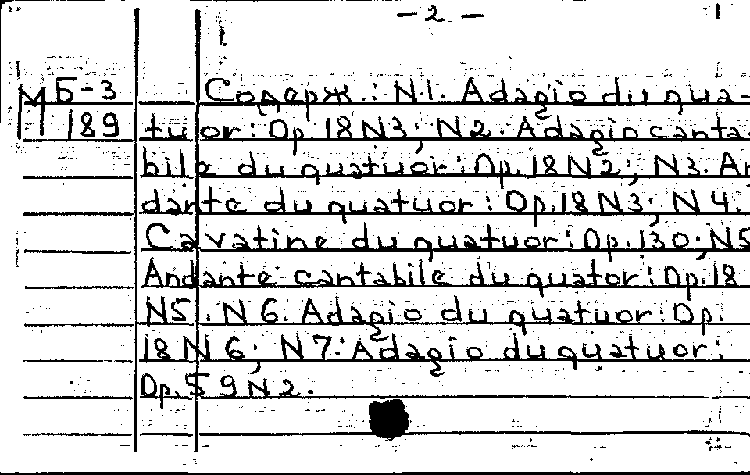 - 2 -
М Б-3
189
Содерж.: N1. Adagio du qua-
tuor: Op. 18 N3; N2. Adagio canta
bile du quatuor: Op. 18 N2; N3. An
dante du quatuor: Op. 18 N3; N4.
Cavatine du quatuor: Op. 130; N5
Andante cantabile du quator: Op. 18
N5. N6. Adagio du quatuor: Op.
18 N6; N7: Adagio du quatuor:
Op. 59 N2.